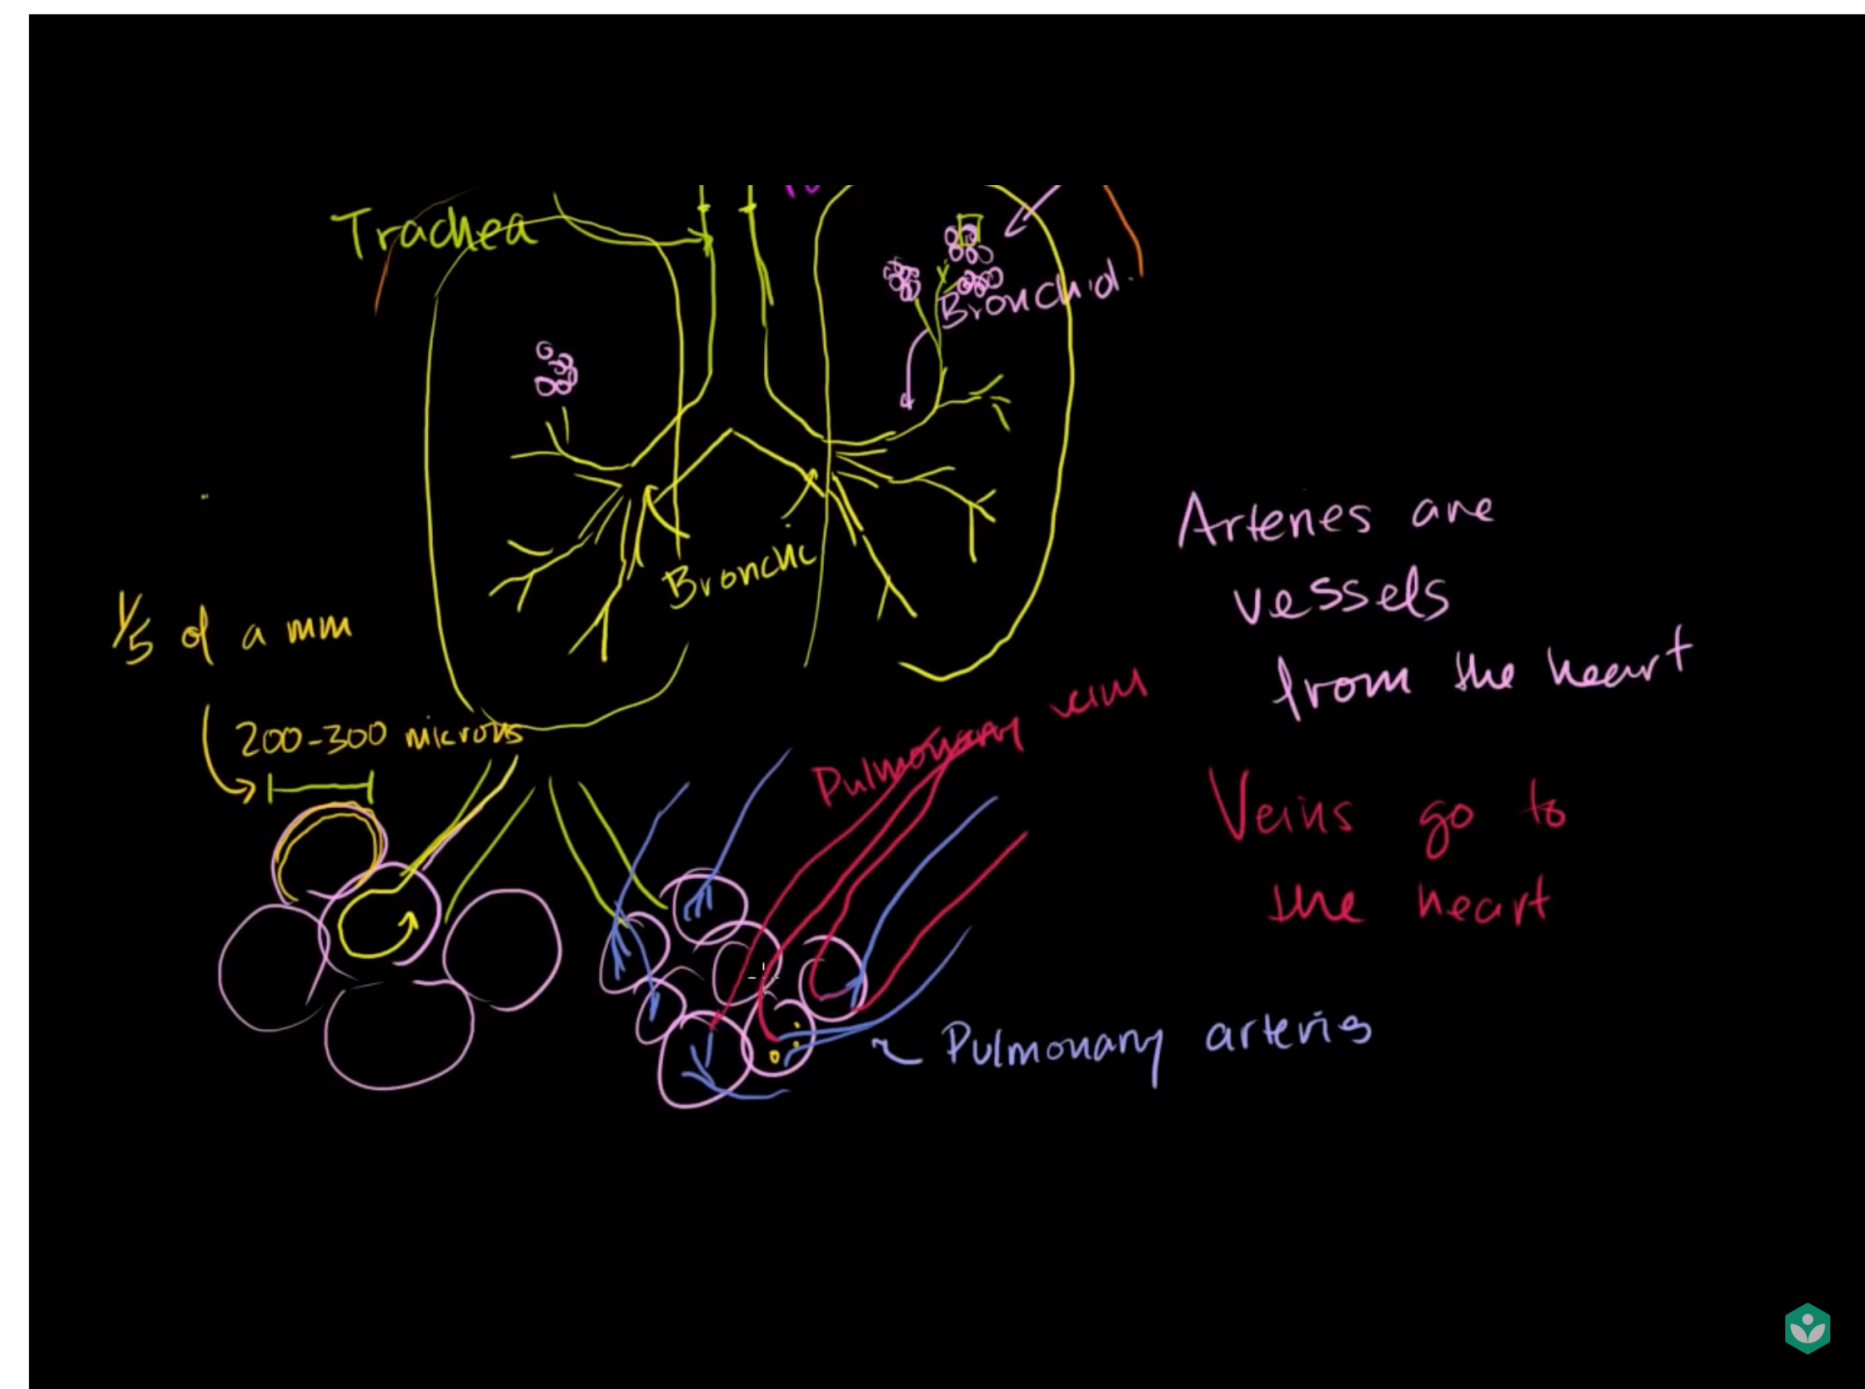 Trachea
Bronchiol.
Bronchi
1/5 of a mm
200-300 microns
Arteries are
vessels
from the heart
Pulmonary veins
Veins go to
the heart
Pulmonary arteries